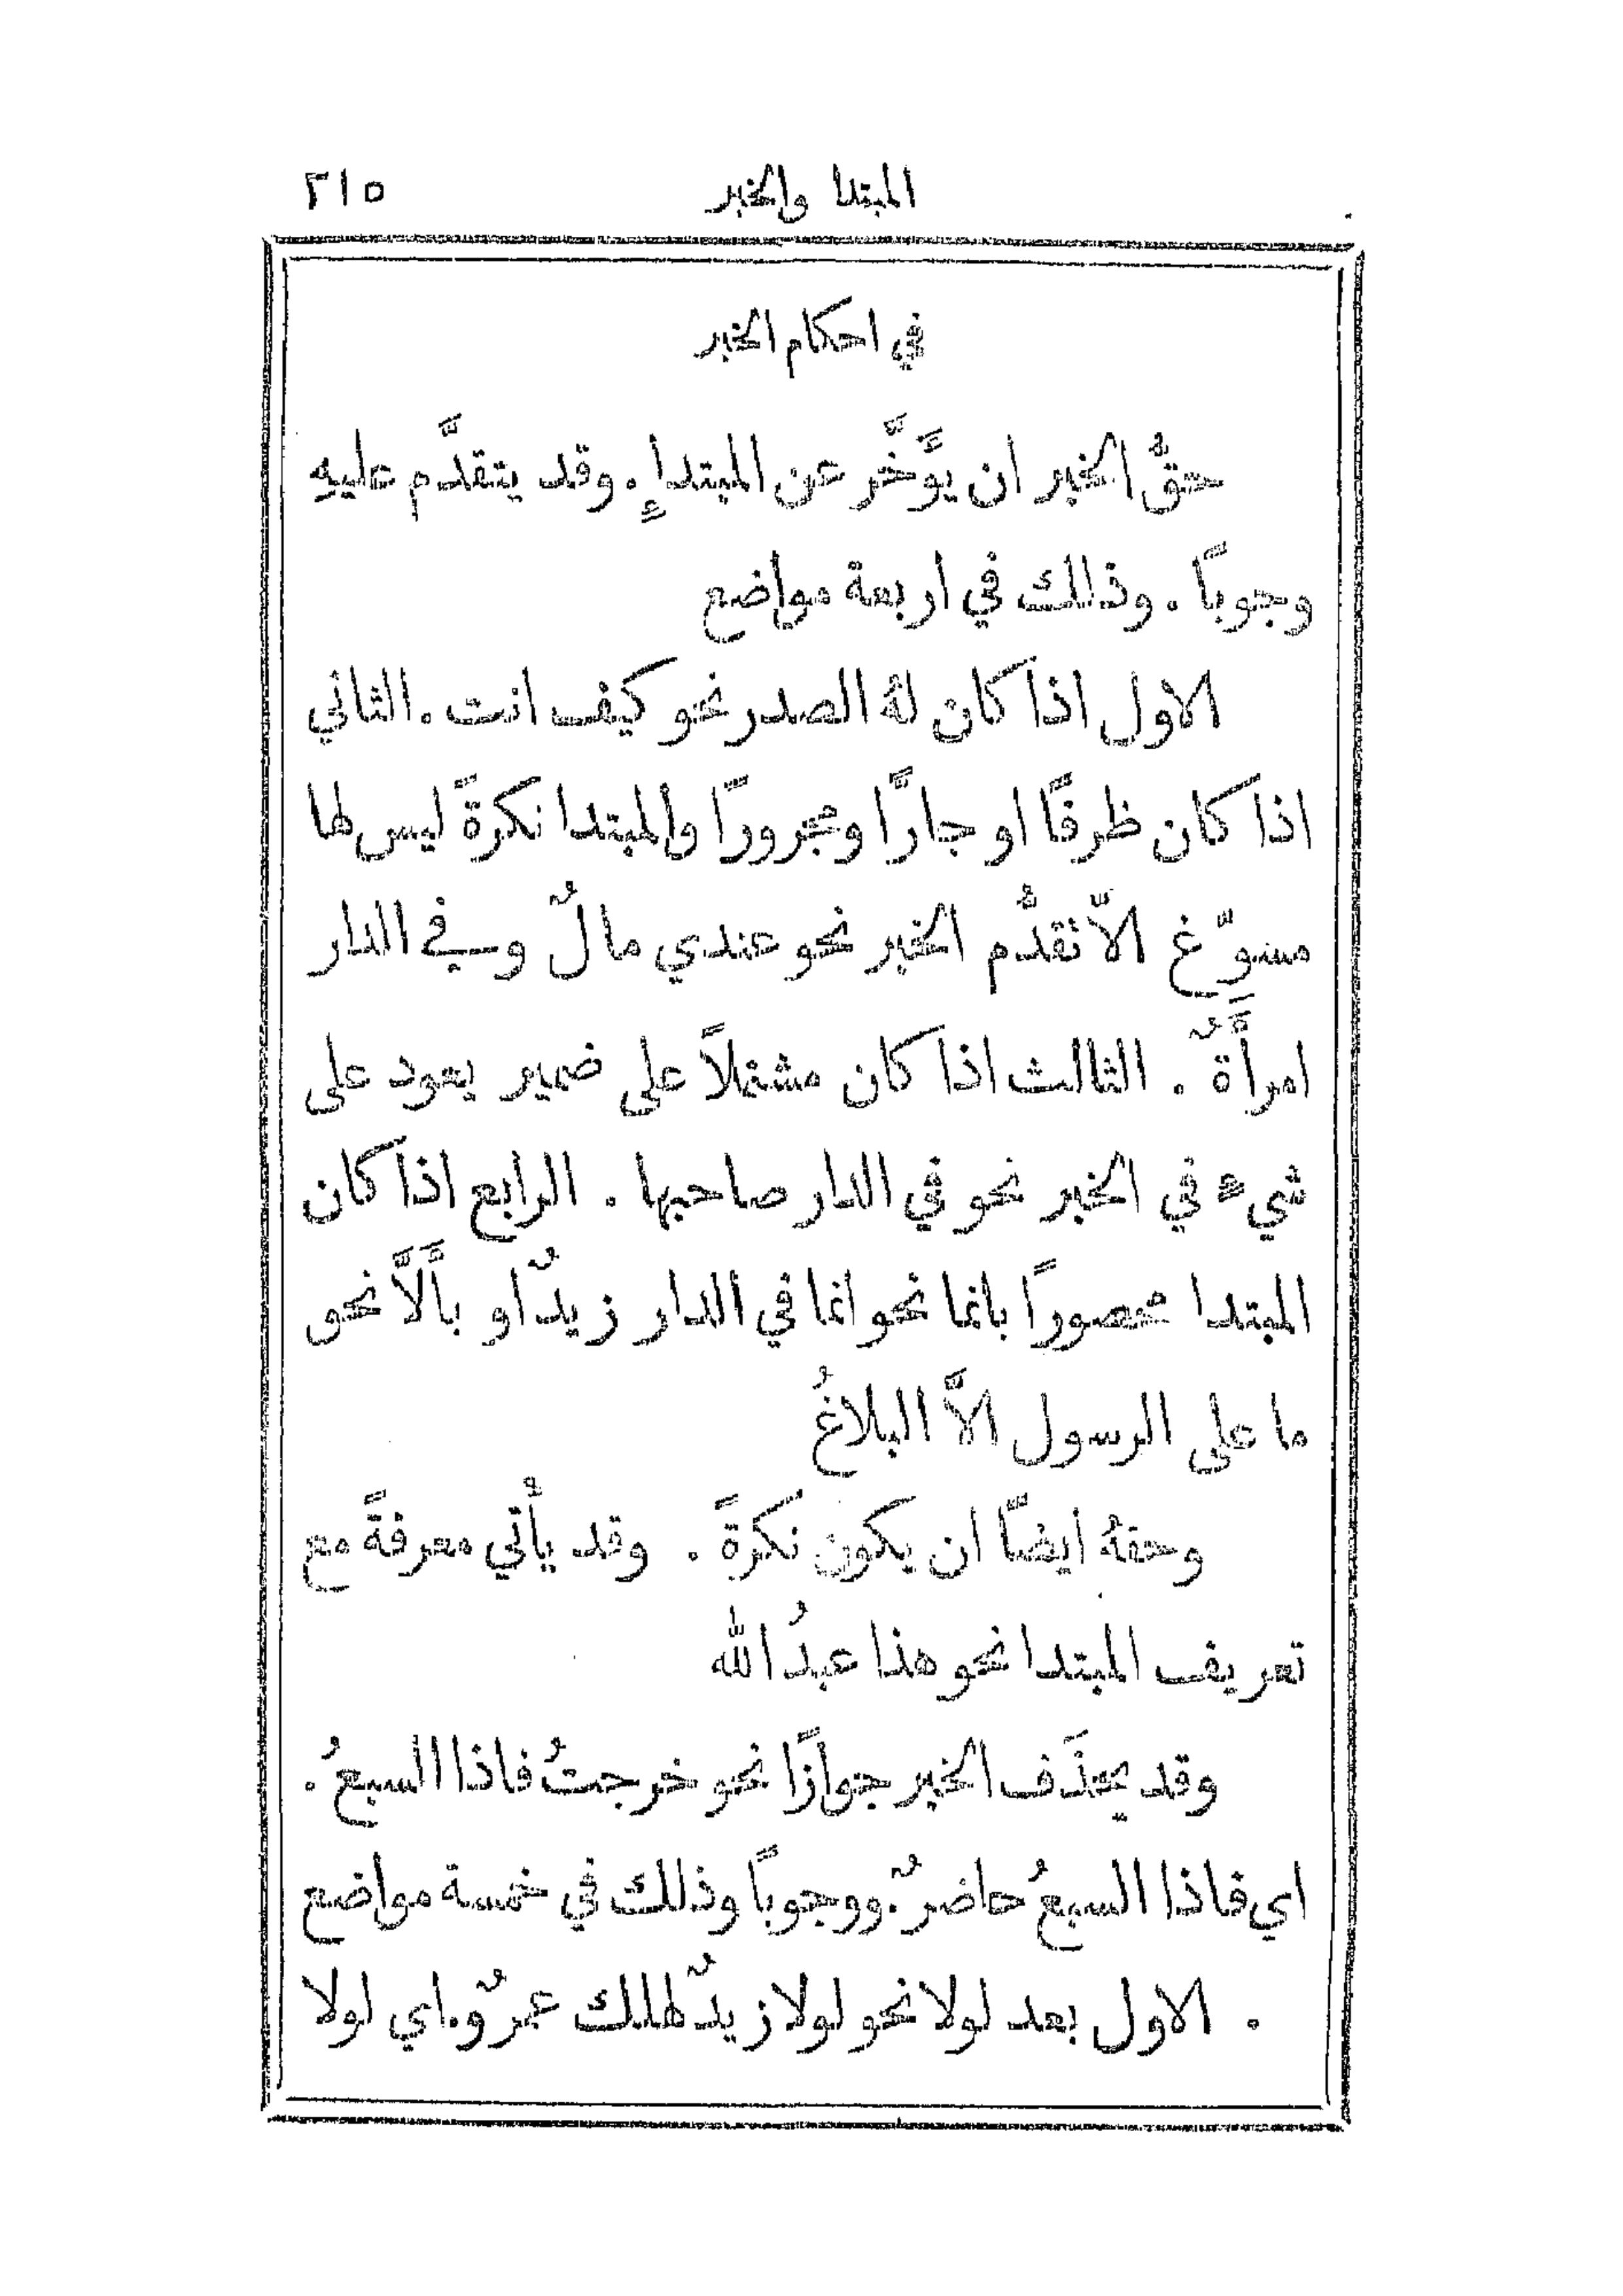 المبتدا والخبر ٢١٥
في احكام الخبر
حقُّ الخبر ان يُؤَخَّر عن المبتدإِ. وقد يتقدَّم عليهِ
وجوبًا. وذلك في اربعة مواضع
الاول اذا كان لهُ الصدر نحو كيف انت. الثاني
اذا كان ظرفًا او جارًّا ومجرورًا والمبتدا نكرةً ليس لها
مسوّغ الّا تقدُّم الخبر نحو عندي مالٌ وفي الدار
امرأَةٌ. الثالث اذا كان مشتملًا على ضمير يعود على
شيءٍ في الخبر نحو في الدار صاحبها. الرابع اذا كان
المبتدا محصورًا بانما نحو انما في الدار زيدٌ او بأَلَّا نحو
ما على الرسول الَّا البلاغُ
وحقهُ ايضًا ان يكون نكرةً. وقد يأْتي معرفةً مع
تعريف المبتدا نحو هذا عبدُ الله
وقد يحذَف الخبر جوازًا نحو خرجتُ فاذا السبعُ.
اي فاذا السبعُ حاضرٌ. ووجوبًا وذلك في خمسة مواضع
. الاول بعد لولا نحو لولا زيدٌ لهلك عمرٌو. اي لولا